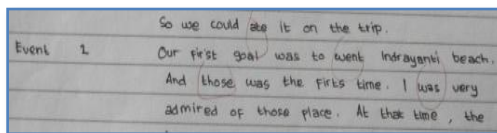 So we could ate it on the trip.
Event 1 Our first goal was to went Indrayanti beach.
And those was the firts time. I was very
admired of those place. At that time, the